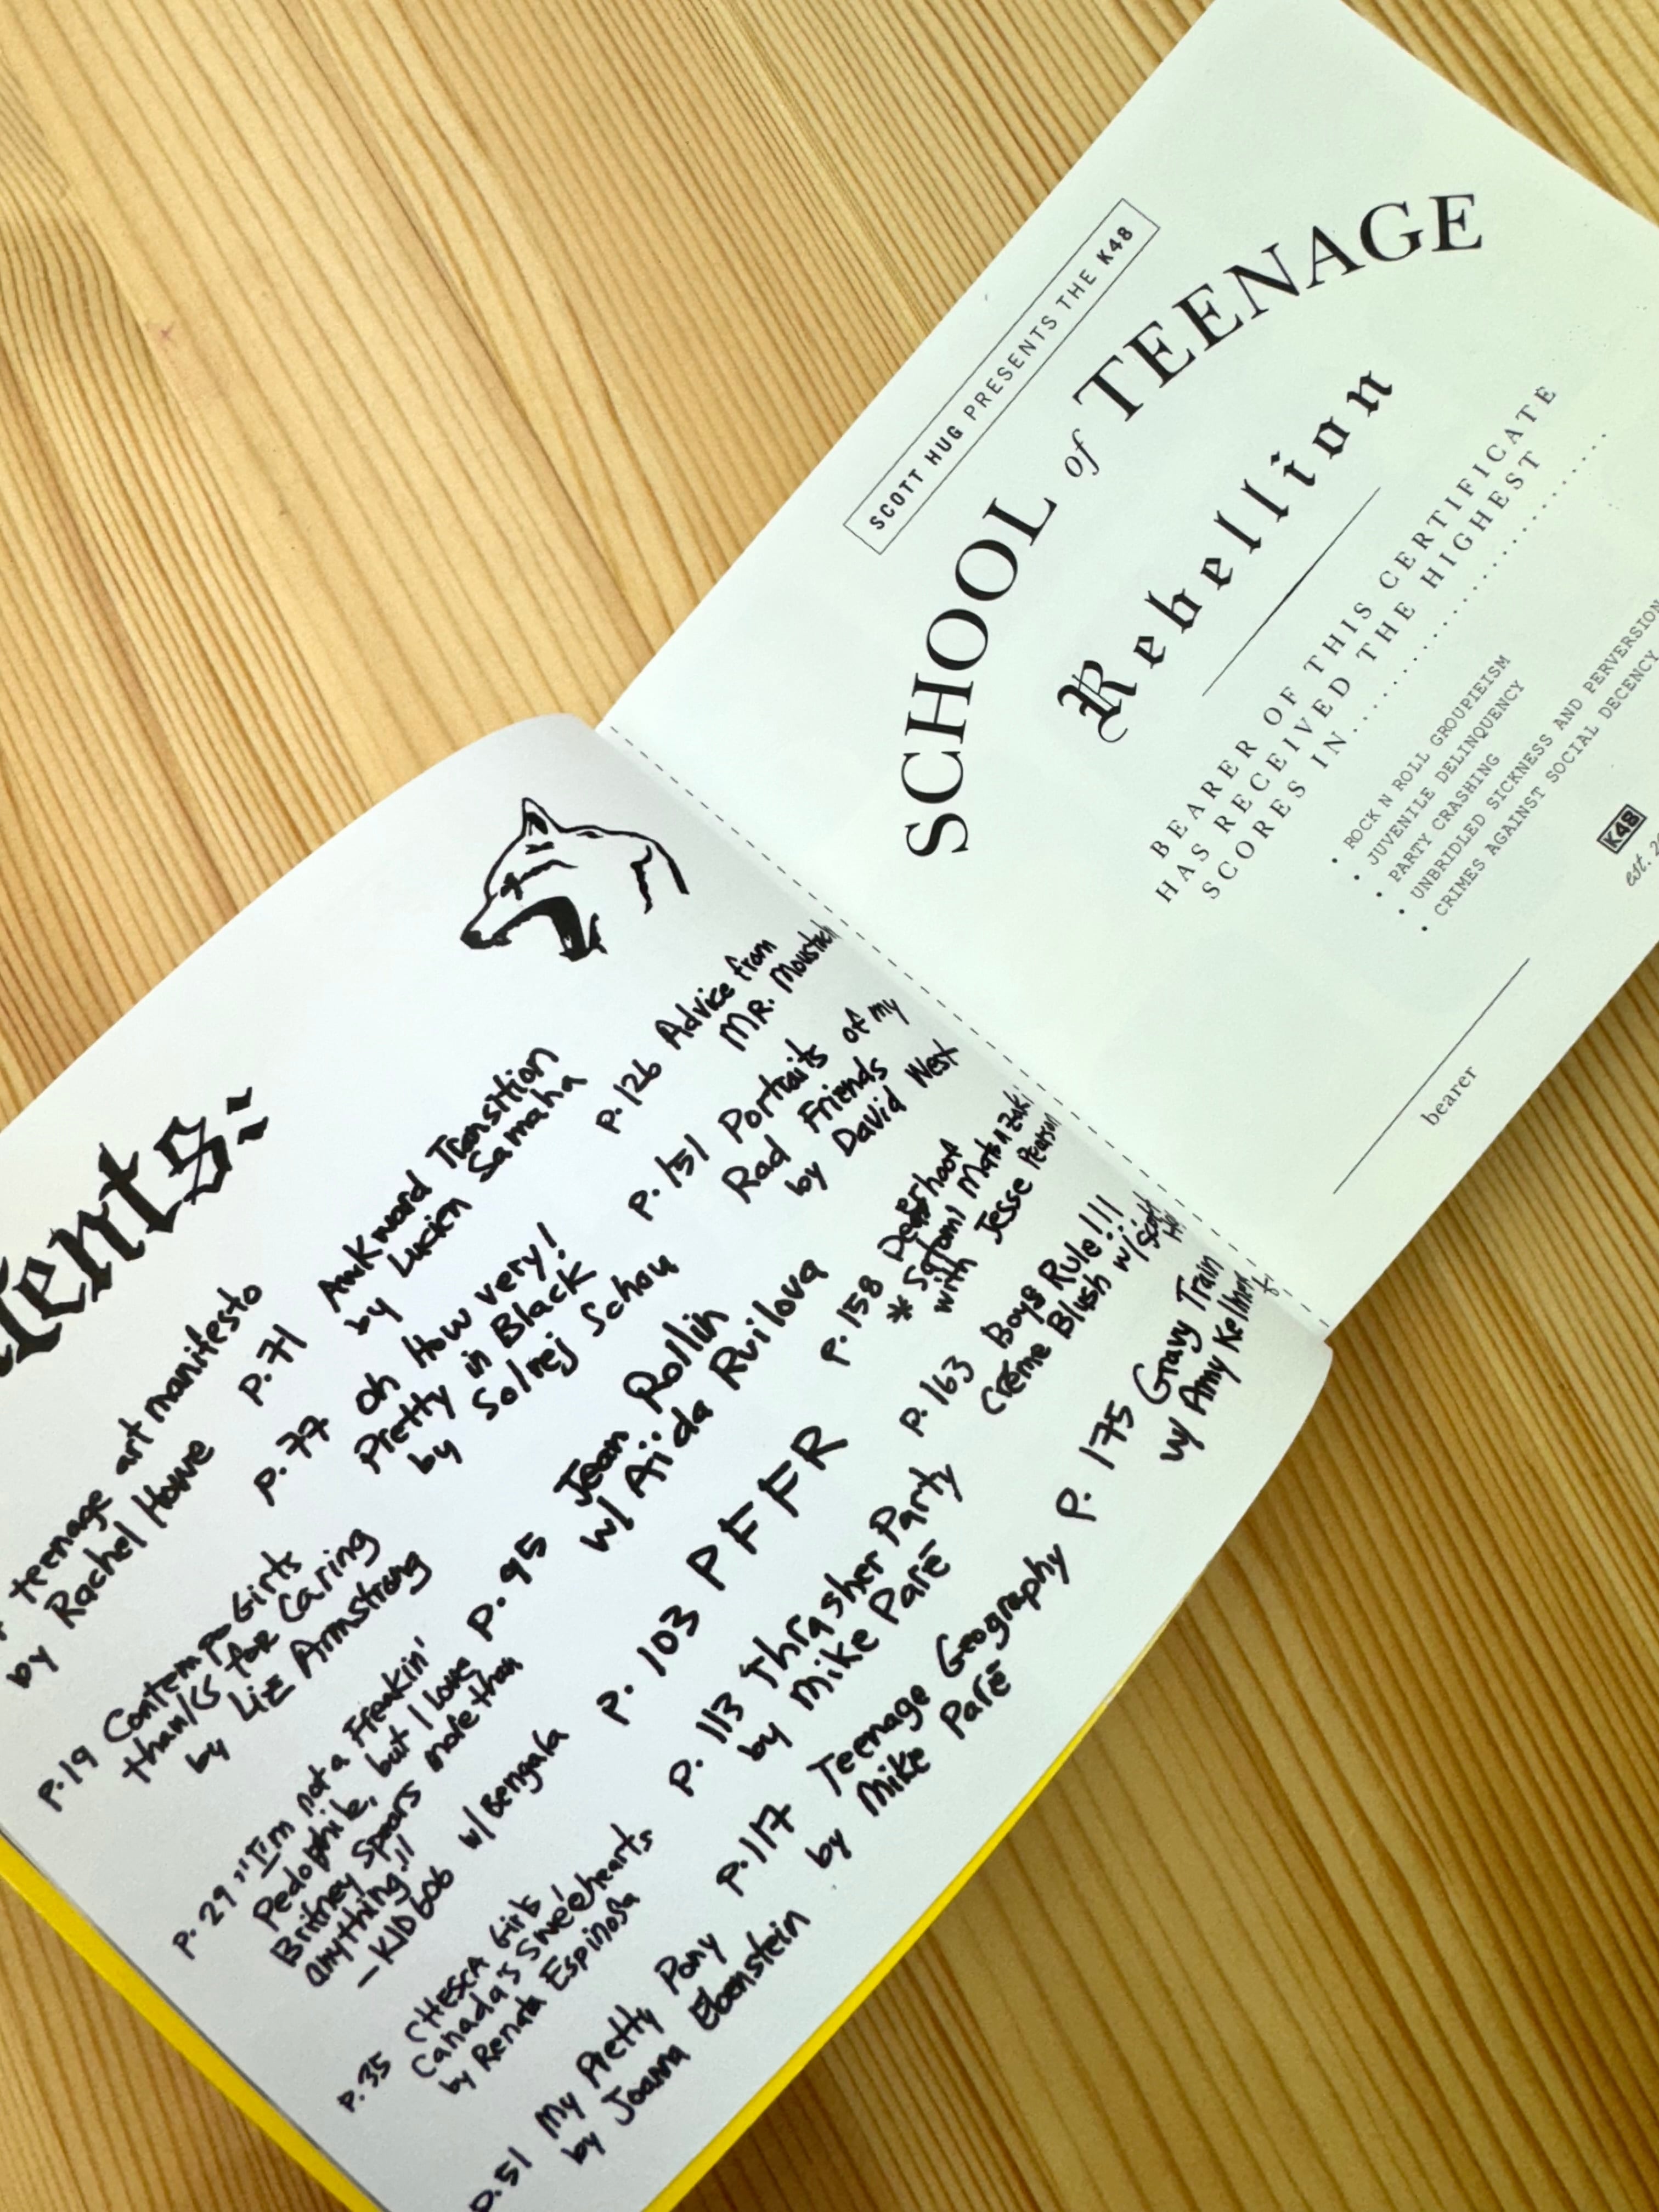 tents:
teenage art manifesto
by Rachel Howe
p.19 Contempo Girls
thanks for Caring
by Liz Armstrong
p. 29 "I'm not a Freakin'
Pedophile, but I love
Britney Spears more than
anything!!
- KID606 w/ Bengala
p.35 CHESCA Girls
Canada's Sweethearts
by Renata Espinosa
p.51 My Pretty Pony
by Joanna Ebenstein
p.71 Awkward Transition
by Lucien Samaha
p.77 Oh How very!
Pretty in Black
by Solrej Schou
p. 95 Jean Rollin
w/ Aïda Ruilova
p. 103 PFFR
p. 113 Thrasher Party
by Mike Paré
p.117 Teenage Geography
by Mike
Paré
p.126 Advice from
MR. Moustach
p.151 Portraits of my
Rad Friends
by David West
p.158 Deershoot
* Satomi Matsuzaki
with Jesse Pearson
p.163 Boys Rule!!!
Crème Blush w/ Scott
Hug
p. 175 Gravy Train
w/ Amy Kellner
SCOTT HUG PRESENTS THE K48
SCHOOL of TEENAGE
Rebellion
BEARER OF THIS CERTIFICATE
HAS RECEIVED THE HIGHEST
SCORES IN....................
• ROCK N ROLL GROUPIEISM
• JUVENILE DELINQUENCY
• PARTY CRASHING
• UNBRIDLED SICKNESS AND PERVERSION
• CRIMES AGAINST SOCIAL DECENCY
K48
est.
bearer